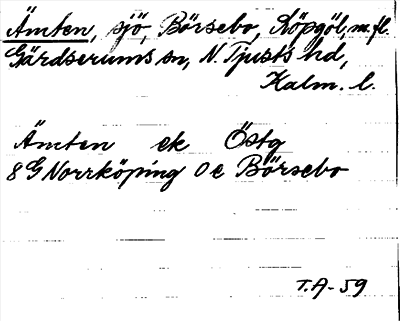 Ämten, sjö, Börsebo, Köpgöl, m.fl.
Gärdserums sn, N. Tjusts hd,
Kalm. l.
Ämten ek Östg
8 G Norrköping 0 e Börsebo
T.A-59